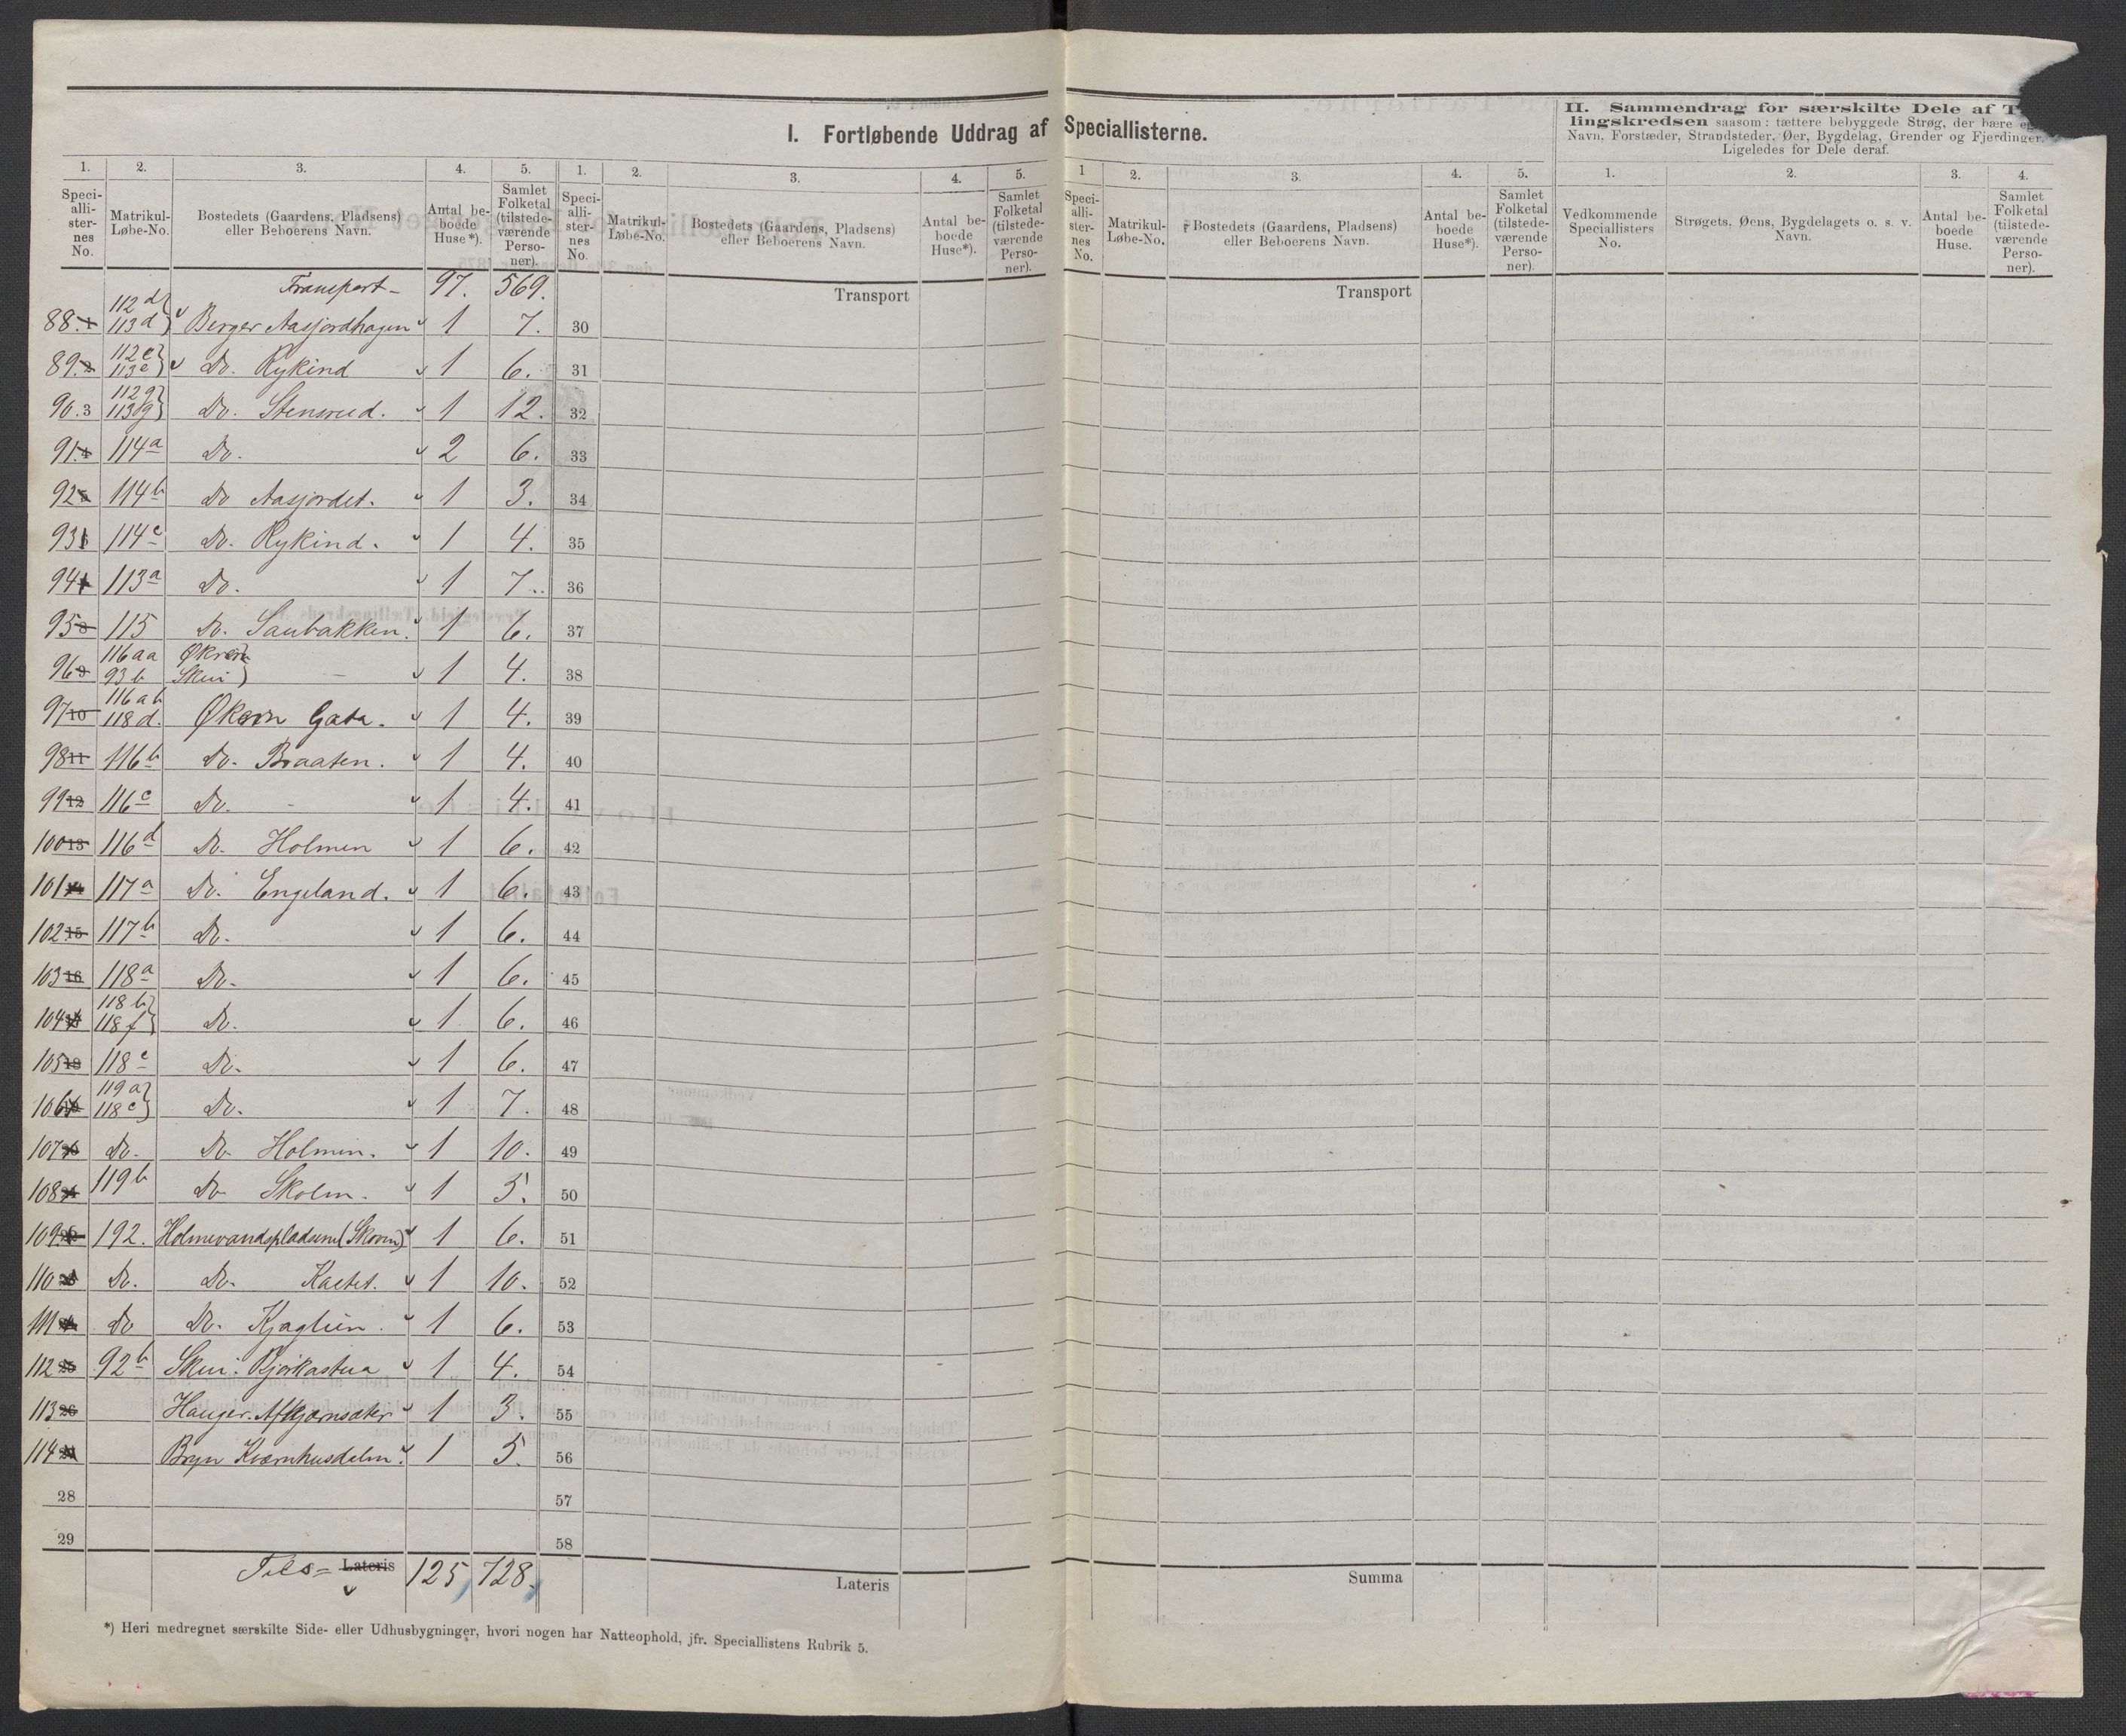 I. Fortløbende Uddrag af Speciallisterne.
II. Sammendrag for særskilte Dele af
lingskredsen saasom: tættere bebyggede Strøg, der bære
Navn, Forstæder, Strandsteder, Øer, Bygdelag, Grender og Fjerdinger.
Ligeledes for Dele deraf.
1. 2. 3. 4. 5. 1. 2. 3. 4. 5. 1 2. 3. 4. 5. 1. 2. 3. 4.
Speciallisternes No. Matrikul-Løbe-No. Bostedets (Gaardens, Pladsens) eller Beboerens Navn. Antal beboede Huse*). Samlet Folketal (tilstedeværende Personer).
Speciallisternes No. Matrikul-Løbe-No. Bostedets (Gaardens, Pladsens) eller Beboerens Navn. Antal beboede Huse*). Samlet Folketal (tilstedeværende Personer).
Speciallisternes No. Matrikul-Løbe-No. Bostedets (Gaardens, Pladsens) eller Beboerens Navn. Antal beboede Huse*). Samlet Folketal (tilstedeværende Personer).
Vedkommende Speciallisters No. Strøgets, Øens, Bygdelagets o. s. v. Navn. Antal beboede Huse. Samlet Folketal (tilstedeværende Personer).
Transport 97. 569. Transport Transport
88. 112d 113d Berger Aasjordhagen 1 7. 30
89. 112e 113e Do. Rykind 1 6. 31
90. 3 112g 113g Do. Stensrud. 1 12. 32
91 114a Do. 2 6. 33
92 114b Do Aasjordet. 1 3. 34
93 114c Do. Rykind. 1 4. 35
94 113a Do. 1 7. 36
95 115 Do. Saubakken. 1 6. 37
96 116aa 93b Økern Skui 1 4. 38
97 10 116ab 118d. Økern Gata. 1 4. 39
98 11 116b Do. Braaten. 1 4. 40
99 12 116c Do. 1 4. 41
100 13 116d Do. Holmen 1 6. 42
101 117a Do. Engeland. 1 6. 43
102 15 117b Do. 1 6. 44
103 16 118a Do. 1 6. 45
104 118b 118f Do. 1 6. 46
105 18 118c Do. 1 6. 47
106 119a 118e Do. 1 7. 48
107 Do. Do. Holmen. 1 10. 49
108 119b Do Skolm. 1 5. 50
109 192. Holmevandspladsene 1 6. 51
110 Do. Do. Kastet. 1 10. 52
111 Do Do. Kjaglien. 1 6. 53
112 25 92b Skui: Bjørkastua 1 4. 54
113 26 Hauger. 1 3. 55
114 Bryn Kværnhusdalen. 1 5. 56
28 57
29 58
Tils= Lateris 125 728. Lateris Summa
*) Heri medregnet særskilte Side- eller Udhusbygninger, hvori nogen har Natteophold, jfr. Speciallistens Rubrik 5.